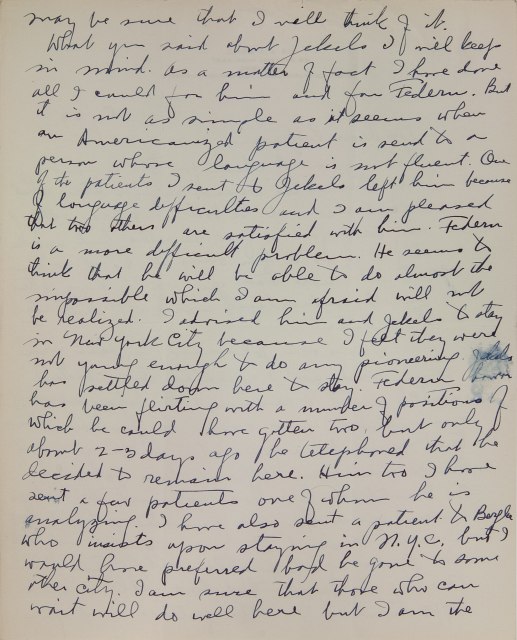 may be sure that I will think of it.
What you said about Jekels I will keep
in mind. As a matter of fact I have done
all I could for him and for Federn. But
it is not as simple as it seems when
an Americanized patient is send to a
person whose language is not fluent. One
of the patients I sent to Jekels left him because
of language difficulties and I am pleased
that two others are satisfied with him. Federn
is a more difficult problem. He seems to
think that he will be able to do almost the
impossible which I am afraid will not
be realized. I advised him and Jekels to stay
in New York City because I felt they were
not young enough to do any pioneering. Jekels
has settled down here to stay. Federn
has been flirting with a number of positions of
which he could have gotten two, but only
about 2-3 days ago he telephoned that he
decided to remain here. Him too I have
sent a few patients one of whom he is
analyzing. I have also sent a patient to Bergler
who insists upon staying in N.Y.C. but I
would have preferred had he gone to some
other city. I am sure that those who can
wait will do well here but I am the